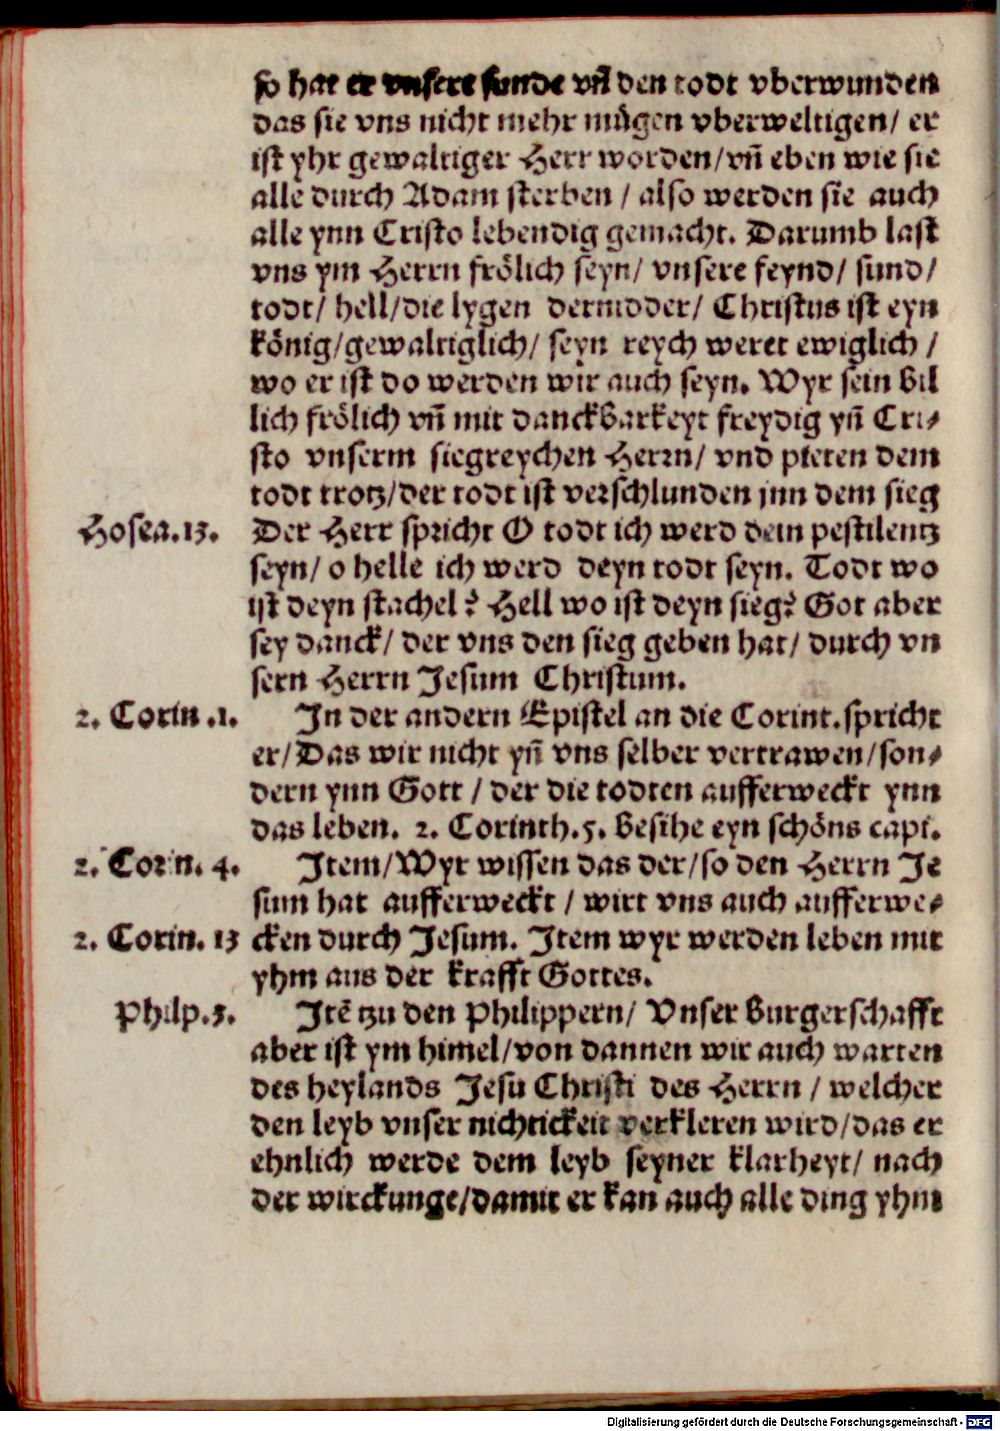 so hat er vnsere sunde vñ den todt vberwunden
das sie vns nicht mehr mügen vberweltigen/ er
ist yhr gewaltiger Herr worden/vñ eben wie sie
alle durch Adam sterben / also werden sie auch
alle ynn Cristo lebendig gemacht. Darumb last
vns ym Herrn frölich seyn/ vnsere feynd/ sund/
todt/ hell/die lygen dernidder/ Christus ist eyn
könig/gewaltiglich/ seyn reych weret ewiglich /
wo er ist do werden wir auch seyn. Wyr sein bil
lich frölich vñ mit danckbarkeyt freydig yñ Cri⸗
sto vnserm siegreychen Herrn/ vnd pieten dem
todt trotz/der todt ist verschlunden jnn dem sieg
Hosea.13. Der Herr spricht O todt ich werd dein pestilentz
seyn/ o helle ich werd deyn todt seyn. Todt wo
ist deyn stachel? Hell wo ist deyn sieg? Got aber
sey danck/ der vns den sieg geben hat/ durch vn
sern Herrn Jesum Christum.
2. Corin .1. In der andern Epistel an die Corint.spricht
er/Das wir nicht yñ vns selber vertrawen/son⸗
dern ynn Gott / der die todten aufferweckt ynn
das leben. 2. Corinth.5. besihe eyn schöns capt.
2. Corin. 4. Item/Wyr wissen das der/so den Herrn Je
sum hat aufferweckt / wirt vns auch aufferwe⸗
2. Corin. 13 cken durch Jesum. Item wyr werden leben mit
yhm aus der krafft Gottes.
Philp.3. Itē tzu den Philippern/ Vnser burgerschafft
aber ist ym himel/von dannen wir auch warten
des heylands Jesu Christi des Herrn / welcher
den leyb vnser nichtickeit verkleren wird/das er
ehnlich werde dem leyb seyner klarheyt/ nach
der wirckunge/damit er kan auch alle ding yhm
Digitalisierung gefördert durch die Deutsche Forschungsgemeinschaft - DFG